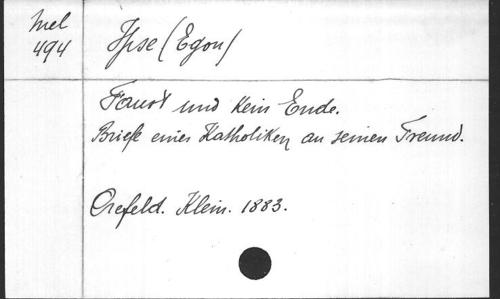 Mel
494
Ipse (Egon)
Faust und kein Ende.
Briefe eines Katholiken an seinen Freund.
Crefeld. Klein. 1883.